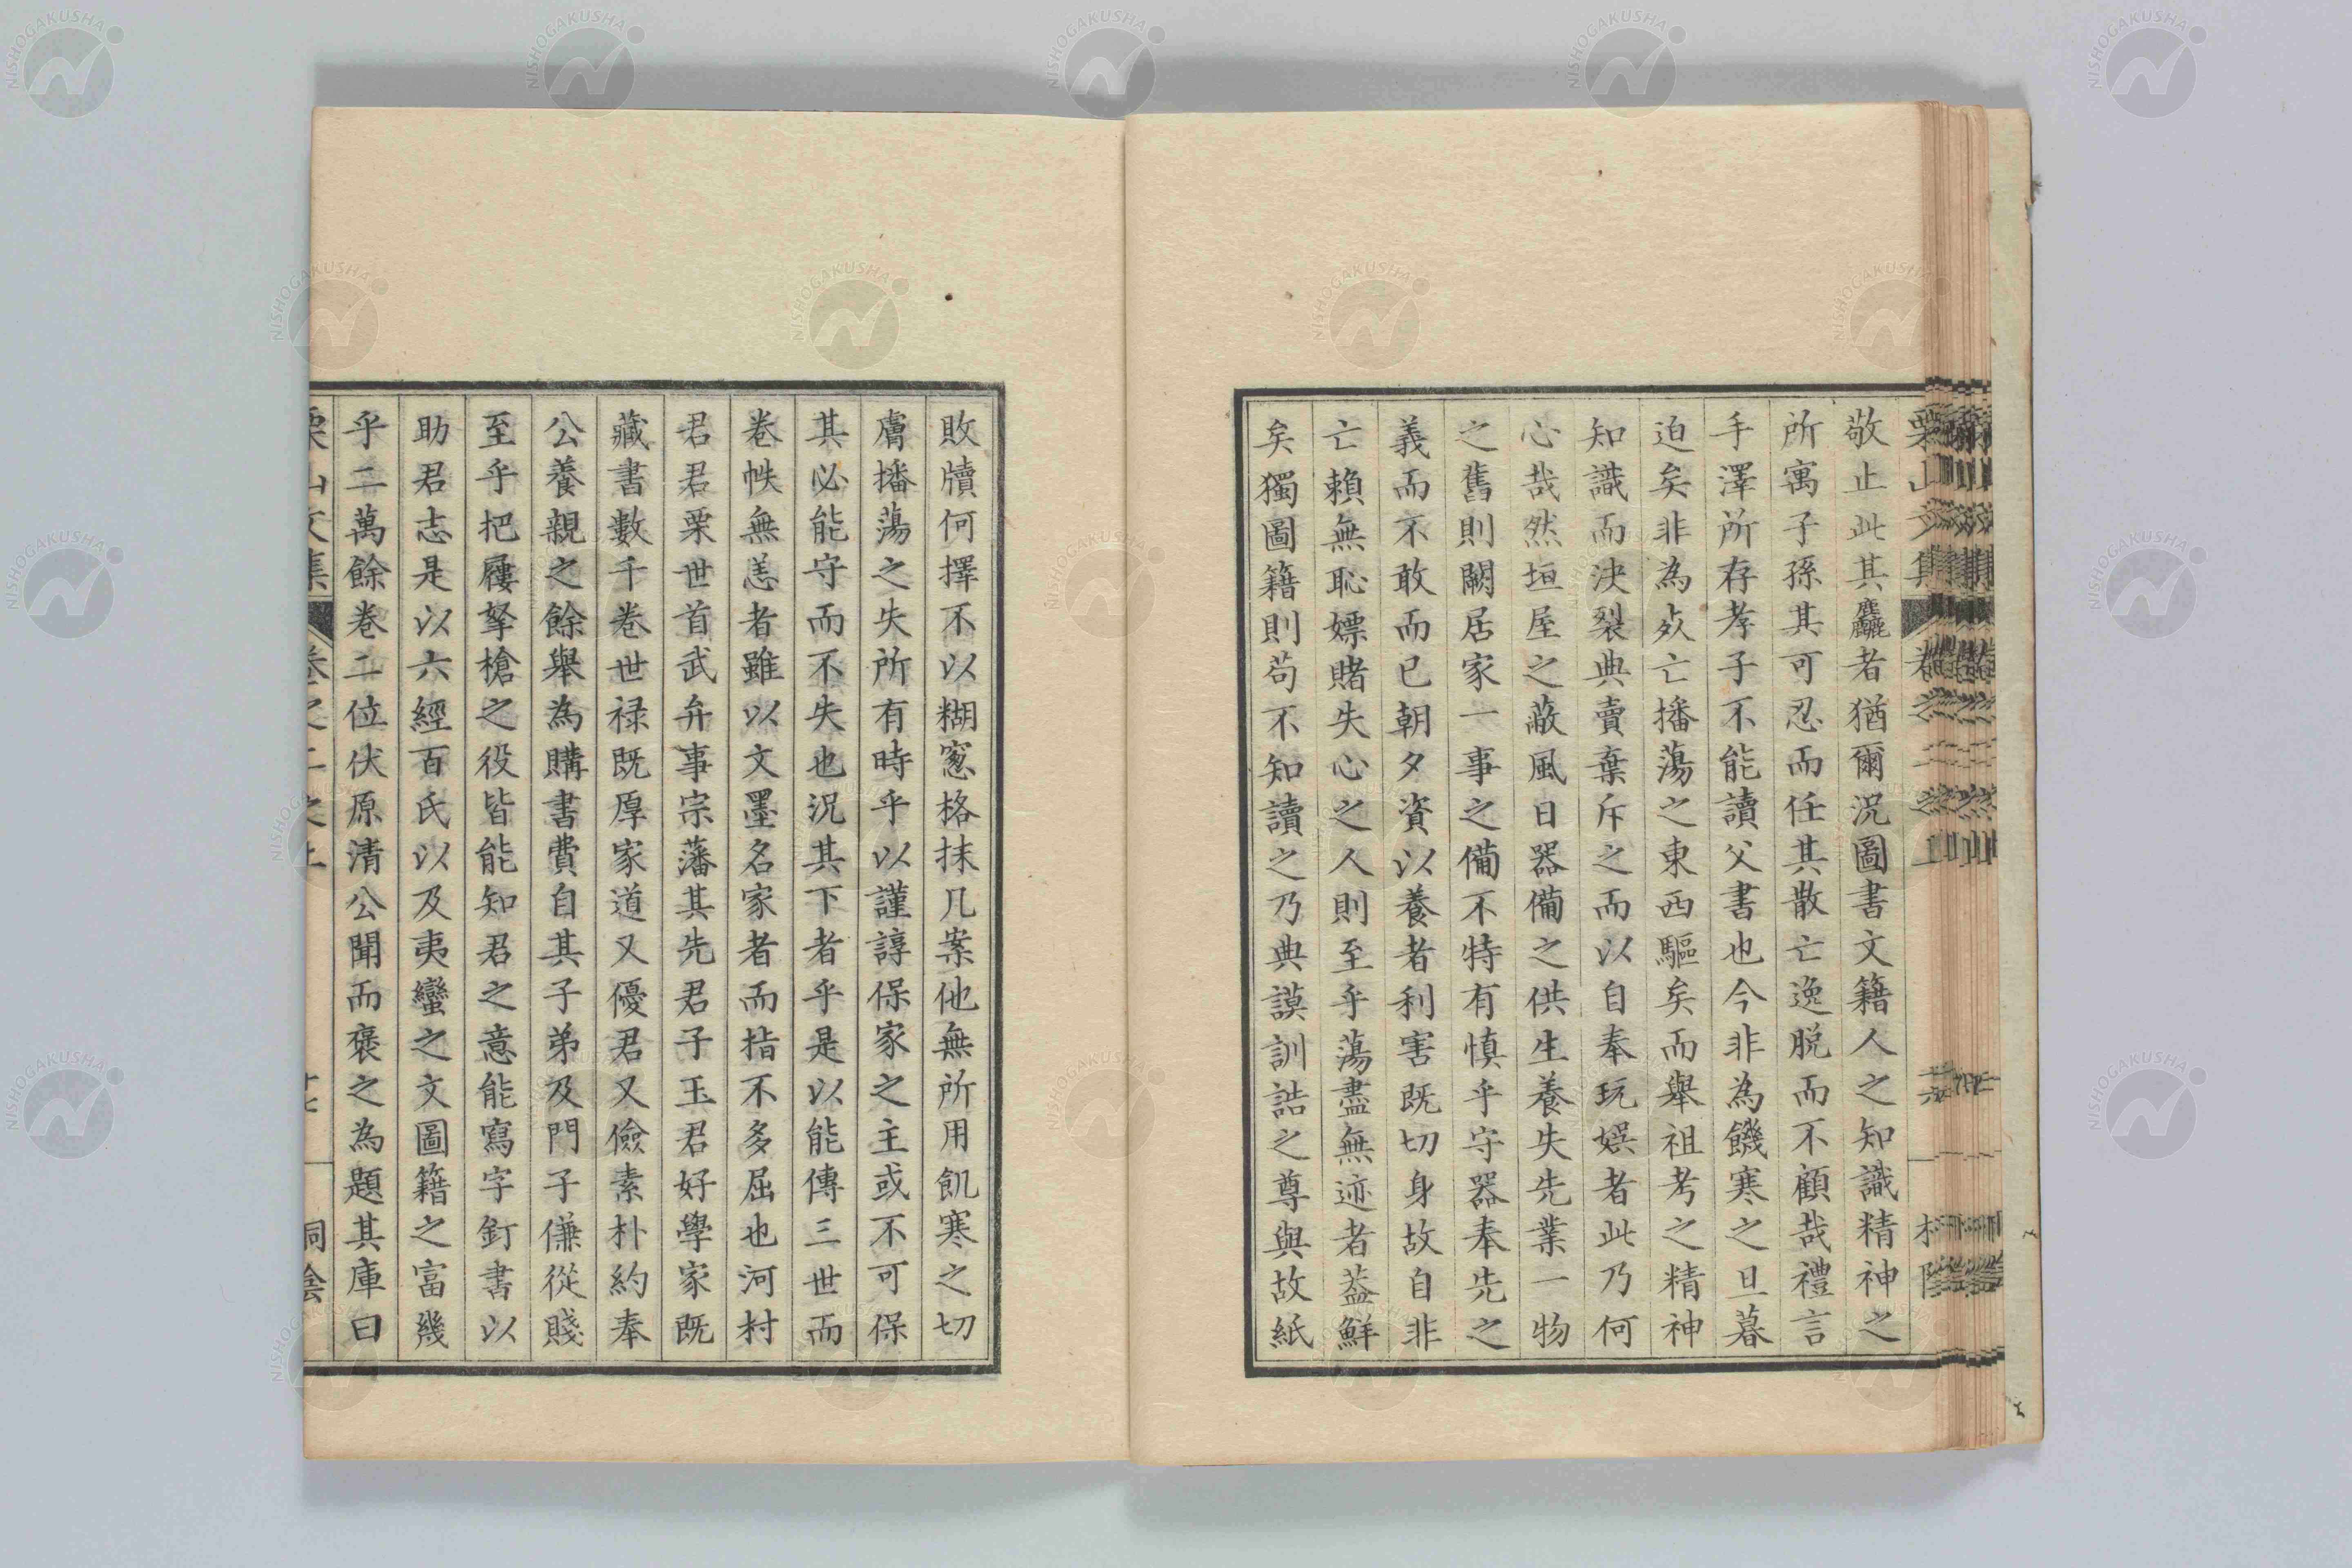 敬止此其麤者猶爾況圖書文籍人之知識精神之
所寓子孫其可忍而任其散亡逸脱而不顧哉禮言
手澤所存孝子不能讀父書也今非為饑寒之旦暮
迫矣非為夾亡播蕩之東西驅矣而舉祖考之精神
知識而決裂典賣棄斥之而以自奉玩娯者此乃何
心哉然垣屋之蔽風日器備之供生養失先業一物
之舊則闕居家一事之備不特有慎乎守器奉先之
義而不敢而已朝夕資以養者利害既切身故自非
亡賴無恥嫖賭失心之人則至乎蕩盡無迹者葢鮮
矣獨圖籍則苟不知讀之乃典謨訓誥之尊與故紙
敗牘何擇不以糊窓格抹几案他無所用飢寒之切
膚播蕩之失所有時乎以謹諄保家之主或不可保
其必能守而不失也況其下者乎是以能傳三世而
卷帙無恙者雖以文墨名家者而指不多屈也河村
君君栗世首武弁事宗藩其先君子玉君好學家既
藏書數千卷世禄既厚家道又優君又儉素朴約奉
公養親之餘舉為購書費自其子弟及門子傔從賤
至乎把屨拏槍之役皆能知君之意能寫字釘書以
助君志是以六經百氏以及夷蠻之文圖籍之富幾
乎二萬餘卷二位伏原清公聞而褒之為題其庫曰
栗山文集 卷之二之上 桐陰
NISHOGAKUSHA